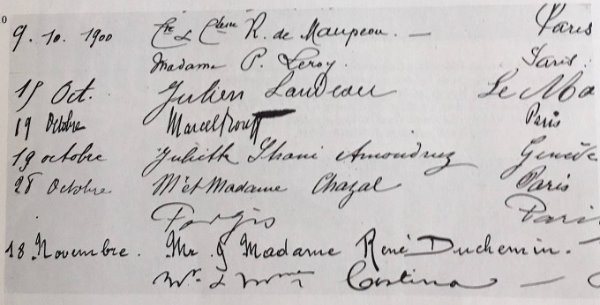 0
9. 10. 1900 Cte & Ctesse R. de Maupeou. — Paris
Madame P. Leroy. Paris.
15 Oct. Julien Landeau Le Ma
19 Octobre Marcel Paris
19 octobre Juliette Genève
28 Octobre Mr et Madame Chazal Paris
Pari
18. Novembre. Mr & Madame René Duchemin.
Mr. & Mme